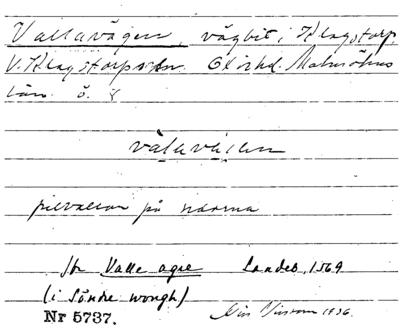 Vallavägen, vägbit i Klagstorp,
V. Klagstorps sn. Oxie hd. Malmöhus
län.
pilvallar på sidorna
Jfr Valle agre Landeb. 1569
(i Söndre wongh)
Nr 5737. 1936.